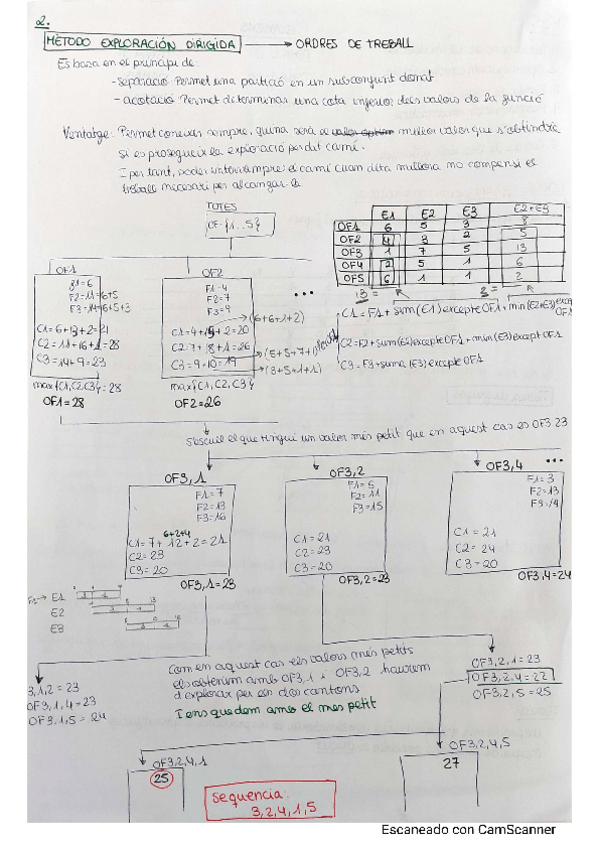 2.
MÈTODO EXPLORACIÓN DIRIGIDA → ORDRES DE TREBALL
Es basa en el principi de:
- separació: Permet una partició en un subconjunt donat
- acotació: Permet determinar una cota inferior dels valors de la funció
Ventatge: Permet coneixer sempre, quina serà el millor valor que s'obtindrà
si es prosegueix la exploració per dit camí.
I per tant, poder sempre el camí cuan dita millora no compensi el
treball necesari per alcançar-la
TOTES
OF={1...5}
E1 E2 E3 E2+E3
OF1 6 5 3 8
OF2 4 3 2 5
OF3 1 7 5 13
OF4 2 5 1 6
OF5 6 1 1 2
13 =
OF1
F1=6
F2=11=6+5
F3=14=6+5+3
C1=6+13+2=21
C2=11+16+1=28
C3=14+9=23
max{C1,C2,C3}=28
OF1=28
OF2
F1=4
F2=7
F3=9
C1=4+15+2=20
C2=7+18+1=26
C3=9+10=19
max{C1,C2,C3}
OF2=26
...
(6+6+1+2)
(5+5+7+1)
(3+5+1+1)
C1=F1+sum(E1)excepteOF1+min(E2+E3)excepte OF1
C2=F2+sum(E2)excepteOF1+min(E3)except OF1
C3=F3+suma(E3)excepte OF1
s'escull el que tingui un valor més petit que en aquest cas es OF3 23
OF3,1
F1=7
F2=13
F3=16
6+2+4
C1=7+12+2=21
C2=23
C3=20
OF3,1=23
OF3,2
F1=5
F2=11
F3=15
C1=21
C2=23
C3=20
OF3,2=23
OF3,4
...
F1=3
F2=13
F3=14
C1=21
C2=24
C3=20
OF3,4=24
E1
E2
E3
Com en aquest cas els valors més petits
els obtenim amb OF3,1 i OF3,2 haurem
d'explorar per els dos cantons
I ens quedem amb el mes petit
3,1,2=23
OF3,1,4=23
OF3,1,5=24
OF3,2,1=23
OF3,2,4=22
OF3,2,5=25
OF3,2,4,1
25
OF3,2,4,5
27
Sequencia:
3,2,4,1,5
Escaneado con CamScanner